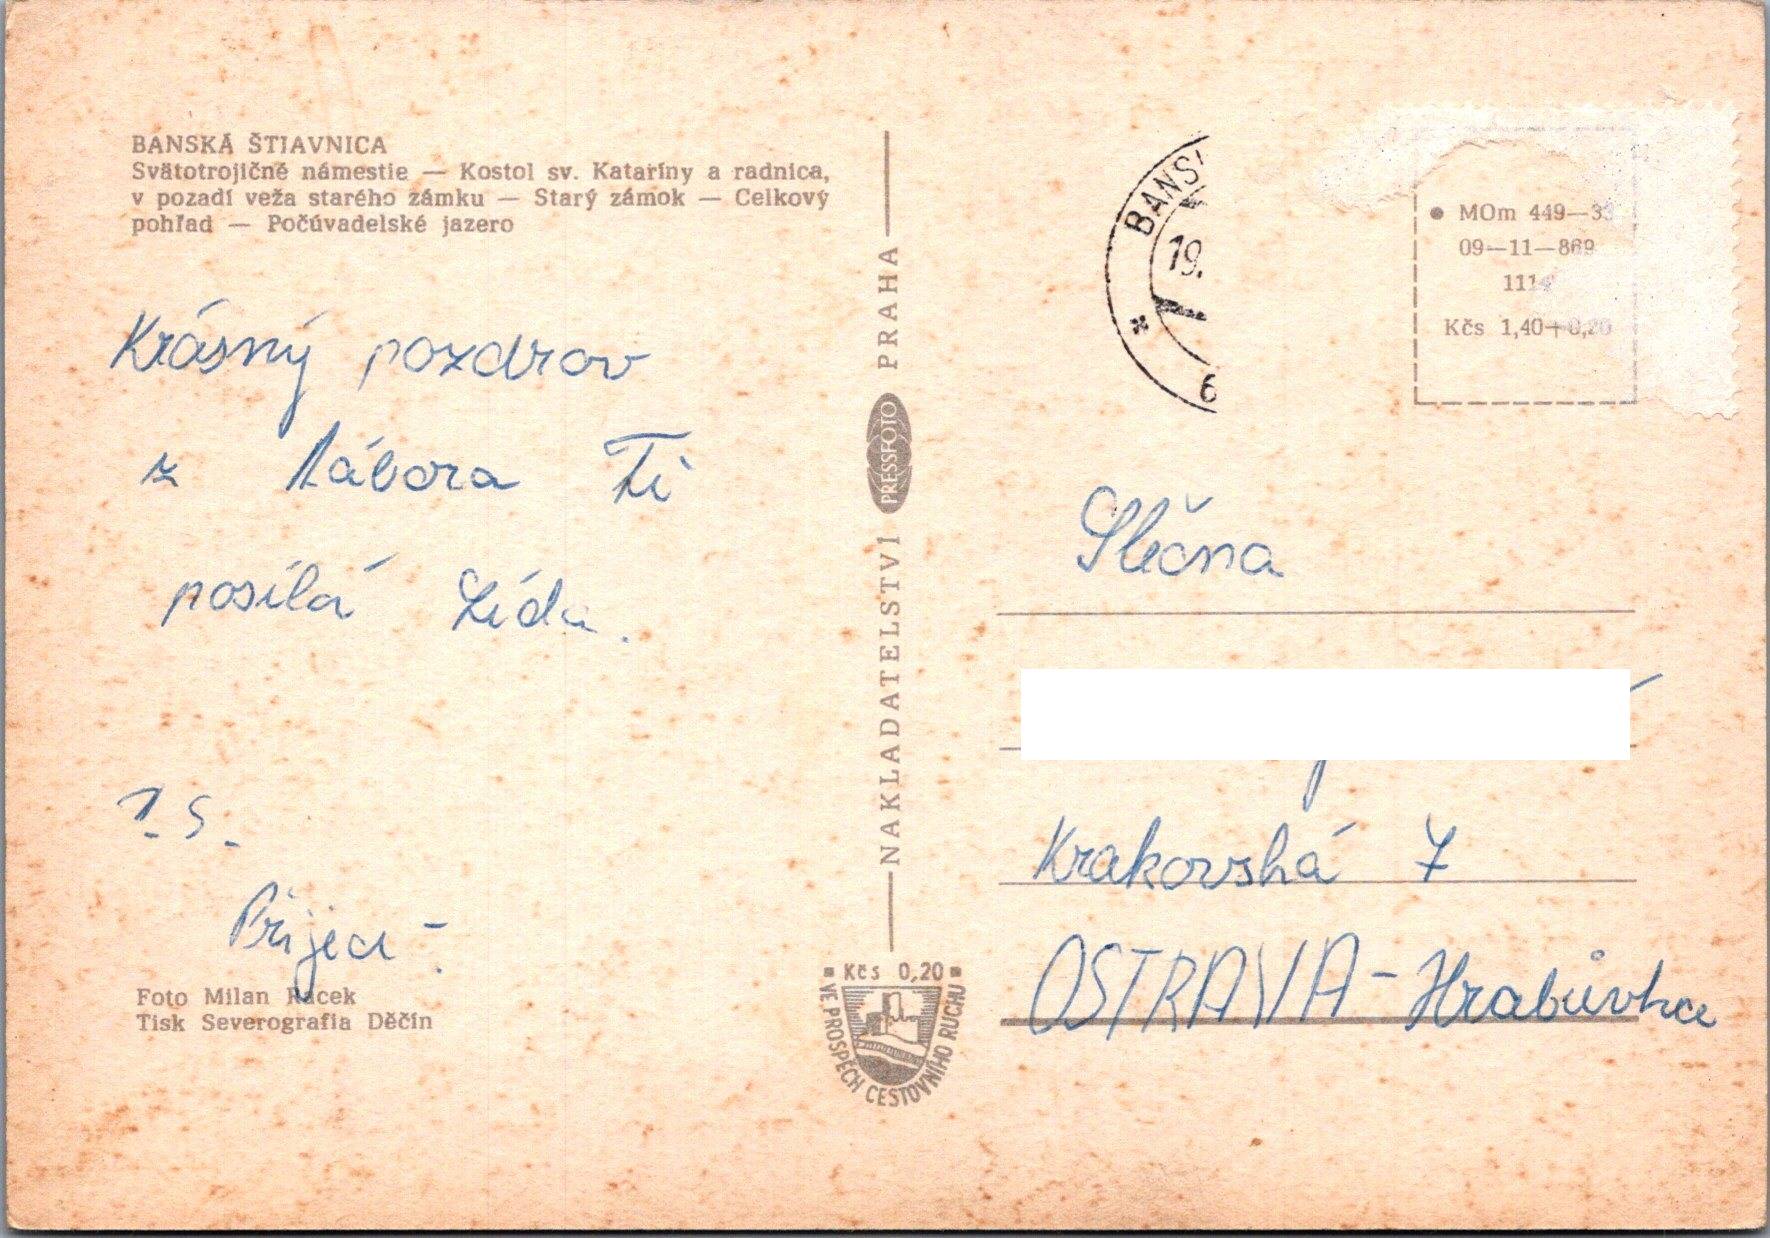 BANSKÁ ŠTIAVNICA
Svätotrojičné námestie — Kostol sv. Kataríny a radnica,
v pozadí veža starého zámku — Starý zámok — Celkový
pohľad — Počúvadelské jazero
Krásný pozdrov
z tábora Ti
posílá Lída.
P.S.
Přijeď
Foto Milan Racek
Tisk Severografia Děčín
NAKLADATELSTVÍ PRESSFOTO PRAHA
Kčs 0,20
VE PROSPĚCH CESTOVNÍHO RUCHU
BANS
19.
6
MOm 449—33
09—11—869
Kčs 1,40+0,20
Slečna
Krakovská 7
OSTRAVA-Hrabůvka